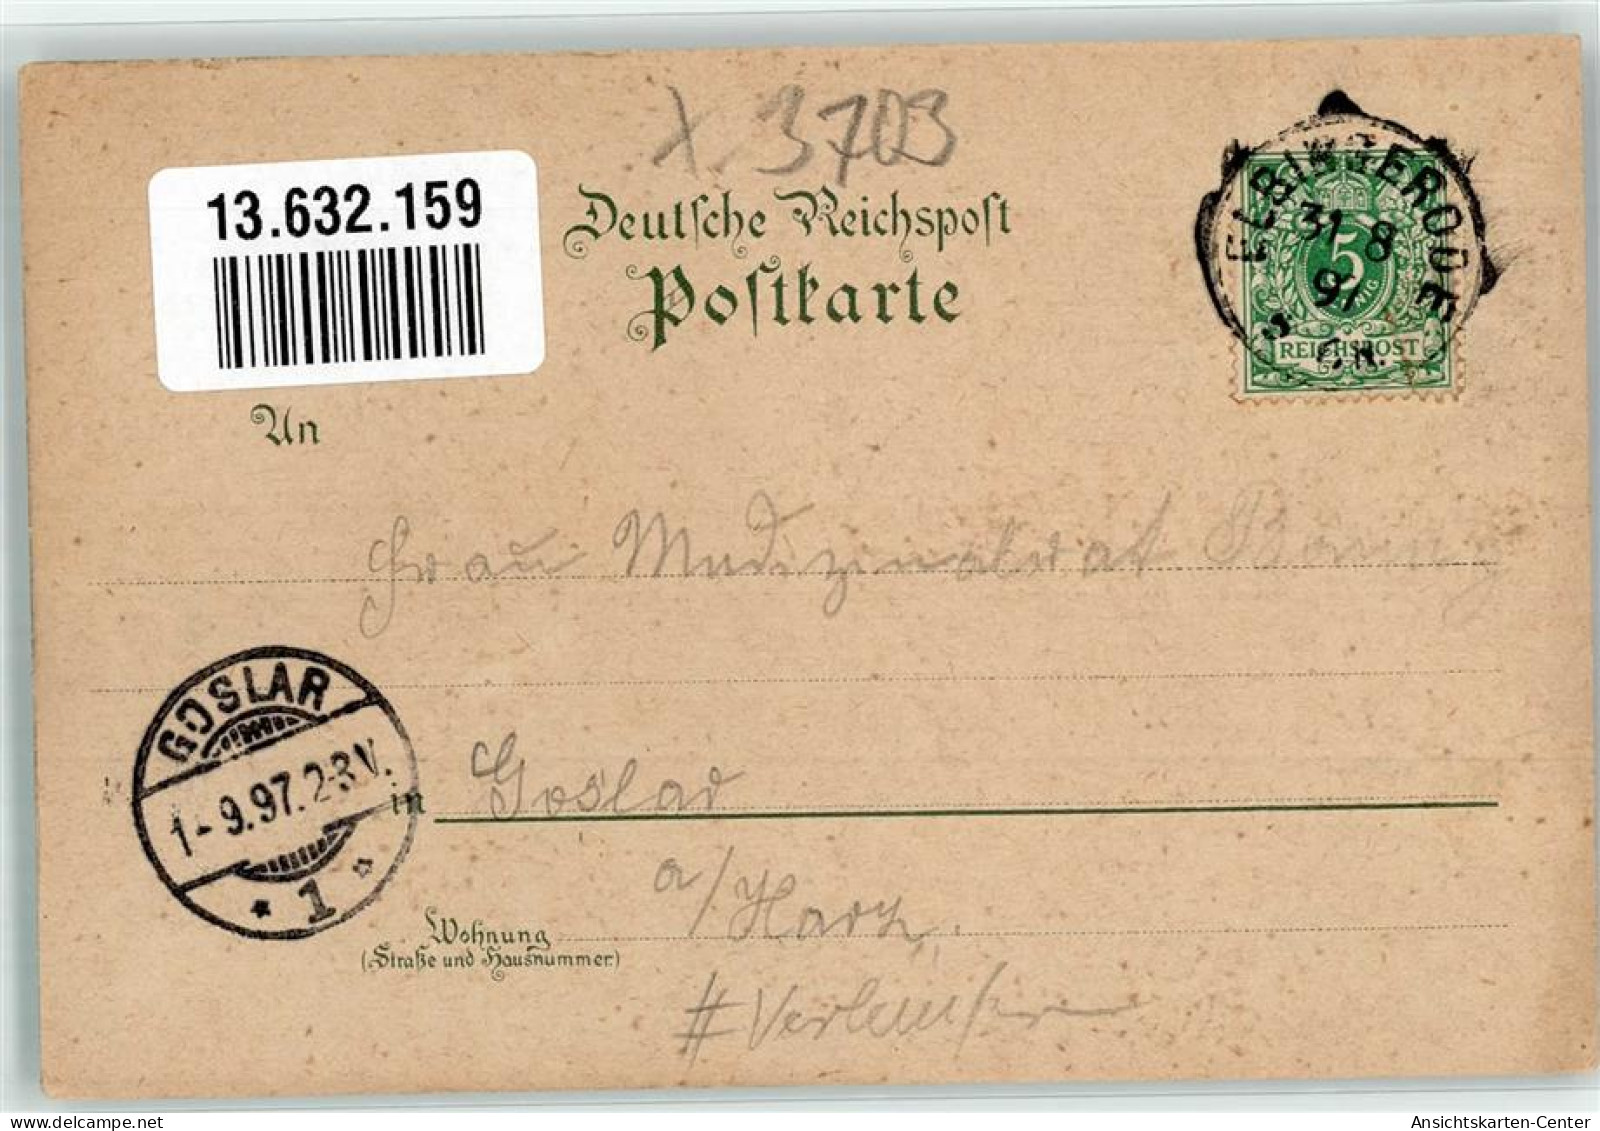 X 3703
13.632.159
Deutsche Reichspost
Postkarte
ELBINGERODE
31 8
97
5
REICHSPOST
An
Frau Medizinalrat
GOSLAR
1-9.97.2-3V.
* 1 *
in Goslar
a/Harz.
Wohnung
(Straße und Hausnummer)
delcampe.net
tom1649
Ansichtskarten-Center